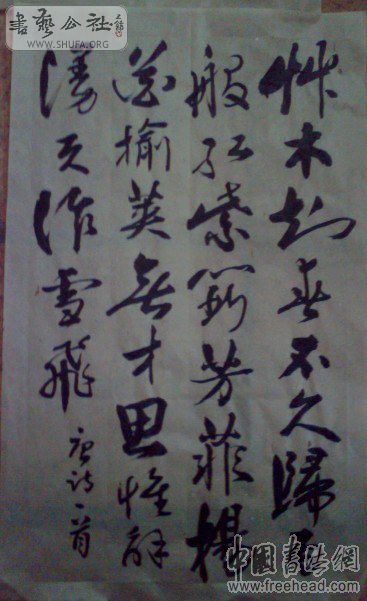 書藝公社
WWW.SHUFA.ORG
艸木知春不久歸百
般红紫鬭芳菲楊
花榆莢無才思惟解
漫天作雪飛
唐诗一首
中國書法網
www.freehead.com